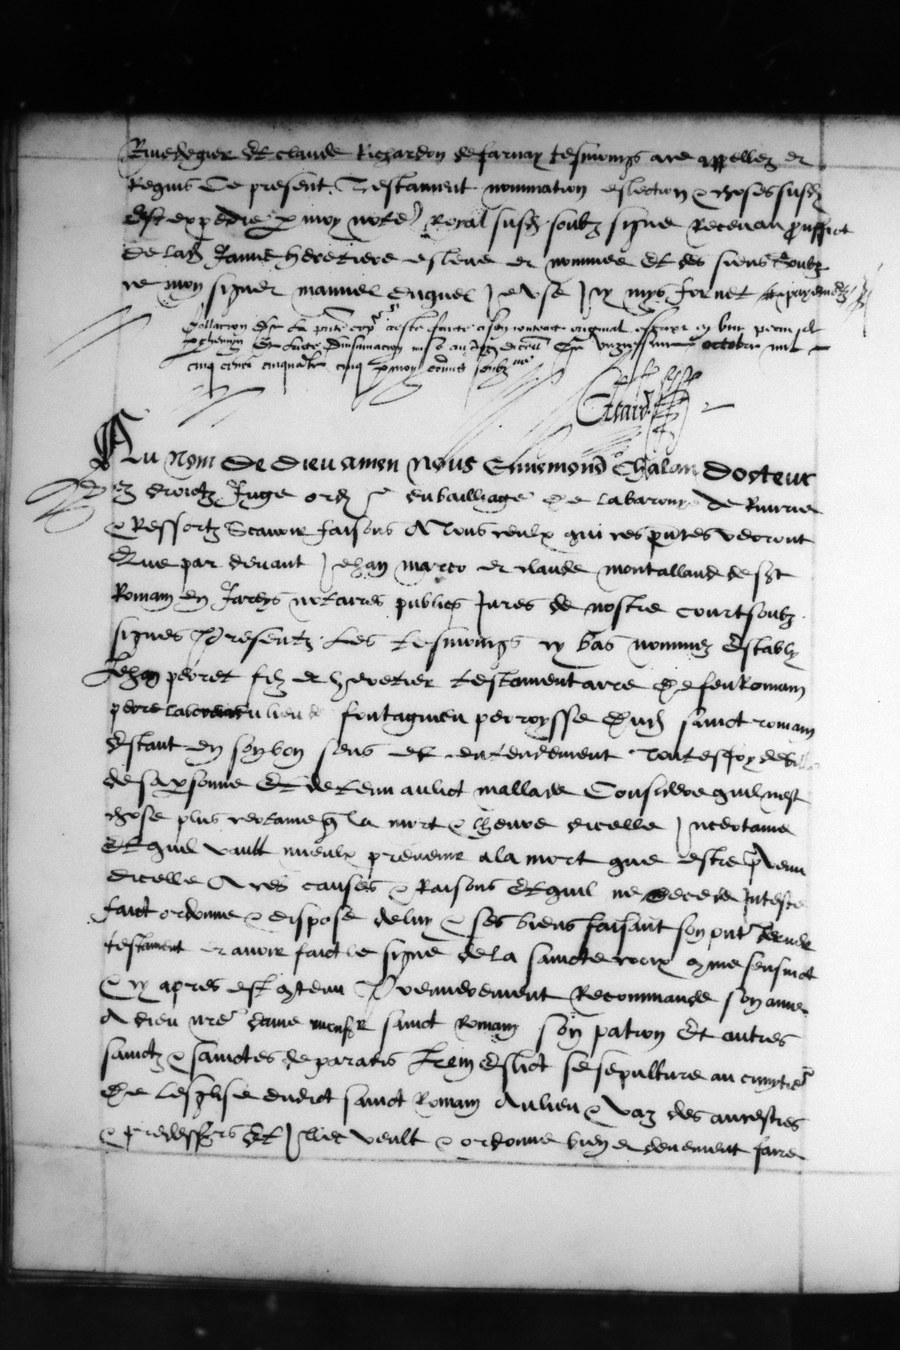 Rivedegier et claude Richardon de farnay tesmoings ad ce appellez et
Requis Ce present Testament nomination eslection & choses susd
Est expediee p moy notre Royal susd soubz signe Recevant prouffict
De lad Janne heretiere esleue et nommee et des siens Soubz
le moy signer manuel
Collation de la pnte coppie a este faicte a son
cinq cens cinquante cinq p moy commis soubz ne
Au Nom De Dieu amen Nous Ennemond Chalan Docteur
ez droictz Juge ord du bailliage de la baronye de Riverie
& Ressortz Scavoir faisons A Tous ceulx qui ces pntes verront
Que par devant Jehan marco et claude montalland de st
Romain en Jareys notaires publicqs Jures de nostre court soubz
signes Presentz Les tesmoings cy bas nommez Estably
Jehan peoret filz et heretier testamentaire de feu Romain
peore laboureur du lieu de fontagnieu perroysse dud sainct romain
Estant en son bon sens et entendement Toutesfoys debille
de sa personne Et detenu au lict mallade Considere quil nest
chose plus certaine q la mort & lheure dicelle Incertaine
Et quil vault mieulx prevenir a la mort que estre prevenu
dicelle A ces causes & Raisons Et quil ne decede Inteste
faict ordonne & dispose de luy & ses biens faisant son pnt dernier
testament et avoir faict le signe de la saincte croix come sensuict
& cy apres est contenu Premierement Recommande son ame
A dieu nre dame monsr sainct Romain son patron Et autres
sainctz & sainctes de paradis Item Eslict se sepulture au cimitiere
De Lesglise dudict sainct Romain Au lieu & vaz des ancestres
& predesseurs Et Illec veult & ordonne bien et deuement faire